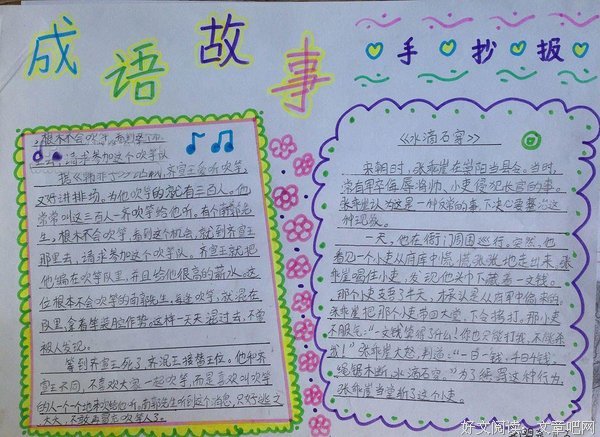 成语故事
手抄报
根木不会吹竽
请求参加这个吹竽队
齐宣王爱听吹竽,
又好讲排场。为他吹竽的就有三百人。他
常常叫这三百人一齐吹竽给他听。有个南郭先
生,根木不会吹竽,看到这个机会,就到齐宣王
那里去,请求参加这个吹竽队。齐宣王就把
他编在吹竽队里,并且给他很高的薪水。这
位根木不会吹竽的南郭先生,每逢吹竽,就混在
队里,拿着竽装腔作势。这样一天天混过去,不曾
被人发现。
等到齐宣王死了,齐湣王接替王位。他和齐
宣王不同,不喜欢大家一起吹竽,而是喜欢叫吹竽
的人一个一个地来吹给他听。南郭先生听到这个消息,只好逃之
夭夭
《水滴石穿》
宋朝时,张乖崖在崇阳当县令。当时,
常有军卒侮辱将帅、小吏侵犯长官的事。
张乖崖认为这是一种反常的事,下决心要整治这
种现象。
一天,他在衙门周围巡行。突然,他
看见一个小吏从府库中慌慌张张地走出来。张
乖崖喝住小吏,发现他头巾下藏着一文钱。
那个小吏支吾了半天,才承认是从府库中偷来的。
张乖崖把那个小吏带回大堂,下令拷打。那小吏
不服气:“一文钱算得了什么!你也只能打我,不能杀
我!”张乖崖大怒,判道:“一日一钱,千日千钱,
绳锯木断,水滴石穿。”为了惩罚这种行为,
张乖崖当堂斩了这个小吏。
好文阅读:文章吧网